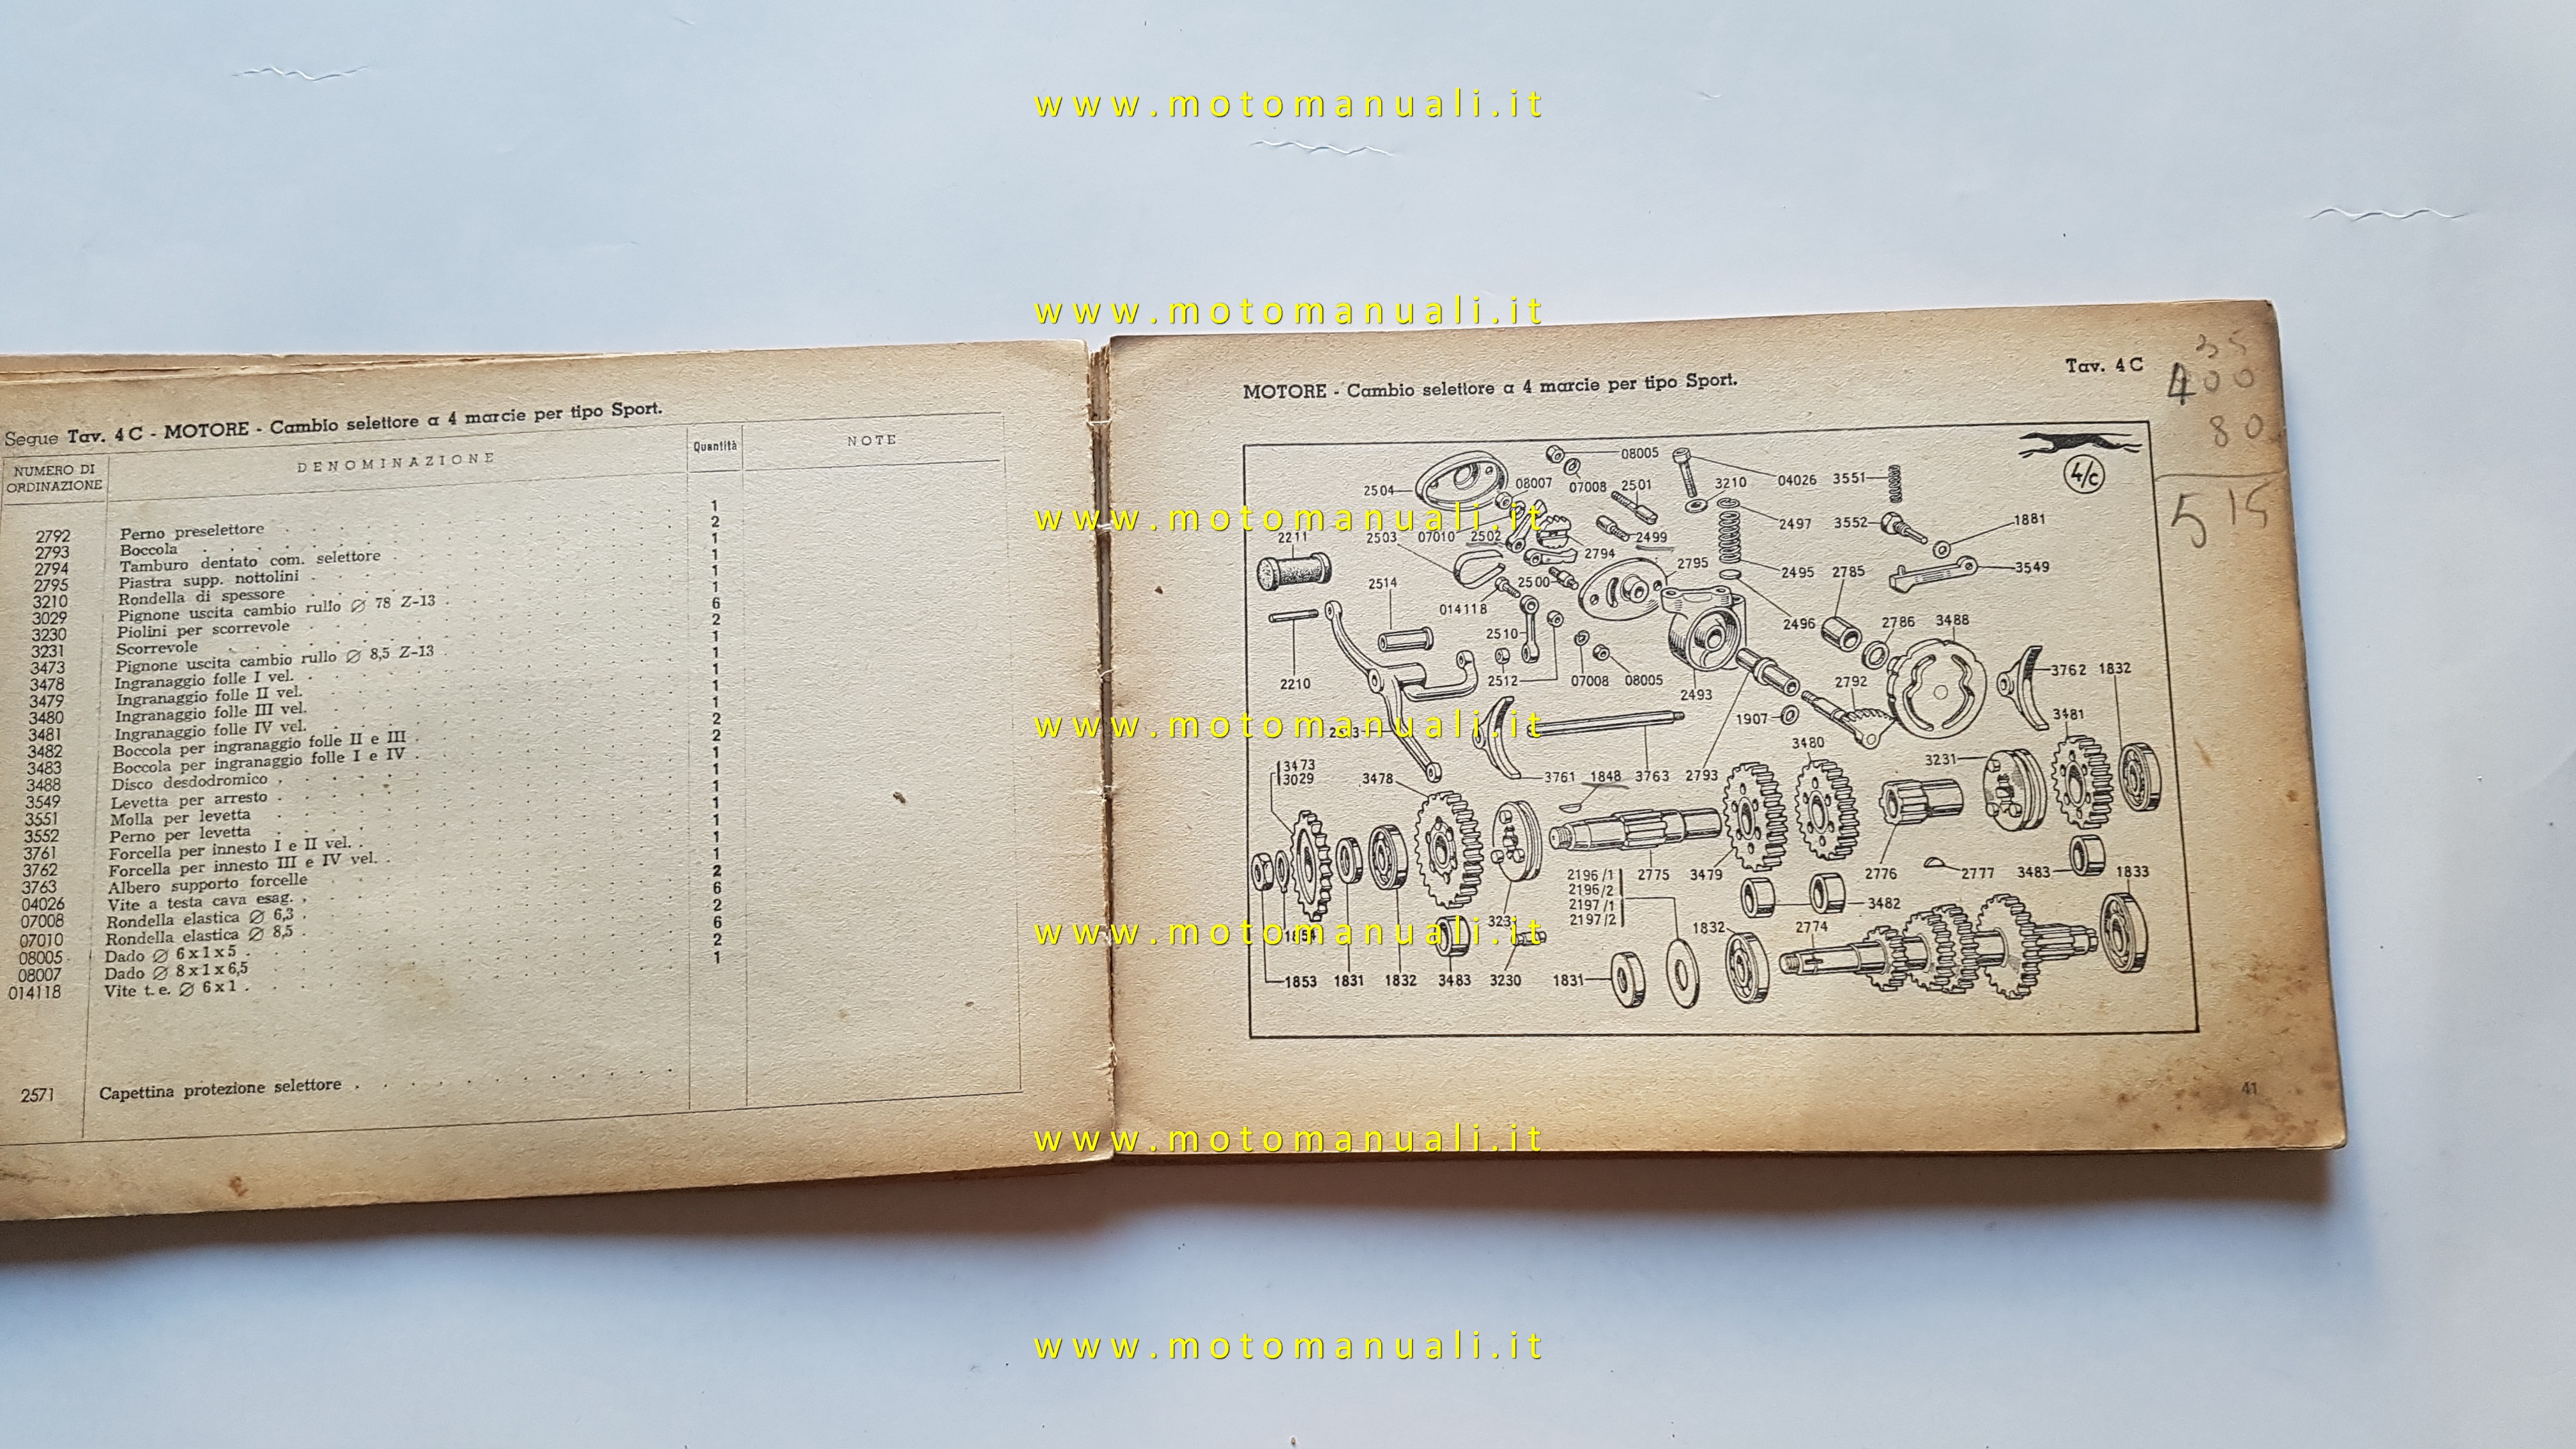 www.motomanuali.it
www.motomanuali.it
www.motomanuali.it
www.motomanuali.it
www.motomanuali.it
www.motomanuali.it
www.motomanuali.it
Segue Tav. 4 C - MOTORE - Cambio selettore a 4 marcie per tipo Sport.
NUMERO DI ORDINAZIONE DENOMINAZIONE Quantità NOTE
2792 Perno preselettore 1
2793 Boccola 2
2794 Tamburo dentato com. selettore 1
2795 Piastra supp. nottolini 1
3210 Rondella di spessore 1
3029 Pignone uscita cambio rullo ∅ 78 Z-13 1
3230 Piolini per scorrevole 6
3231 Scorrevole 2
3473 Pignone uscita cambio rullo ∅ 8,5 Z-13 1
3478 Ingranaggio folle I vel. 1
3479 Ingranaggio folle II vel. 1
3480 Ingranaggio folle III vel. 1
3481 Ingranaggio folle IV vel. 1
3482 Boccola per ingranaggio folle II e III 2
3483 Boccola per ingranaggio folle I e IV 2
3488 Disco desdodromico 1
3549 Levetta per arresto 1
3551 Molla per levetta 1
3552 Perno per levetta 1
3761 Forcella per innesto I e II vel. 1
3762 Forcella per innesto III e IV vel. 1
3763 Albero supporto forcelle 1
04026 Vite a testa cava esag. 2
07008 Rondella elastica ∅ 6,3 6
07010 Rondella elastica ∅ 8,5 2
08005 Dado ∅ 6x1x5 6
08007 Dado ∅ 8x1x6,5 2
014118 Vite t.e. ∅ 6x1 1
2571 Capettina protezione selettore
MOTORE - Cambio selettore a 4 marcie per tipo Sport.
Tav. 4 C
35
400
80
515
4/c
08005
2504 08007 07008 2501 3210 04026 3551
2497 3552 1881
2211 2503 07010 2502 2499
2794 2795
2514 2500 2495 2785 3549
014118
2510 2496 2786 3488
2210 2512 07008 08005 2493 2792 3762 1832
1907 3481
3480
3473
3029
3478 3761 1848 3763 2793 3231
2196/1
2196/2
2197/1
2197/2
2775 3479 2776 2777 3483 1833
3482
1832 2774
1853 1831 1832 3483 3230 1831
41